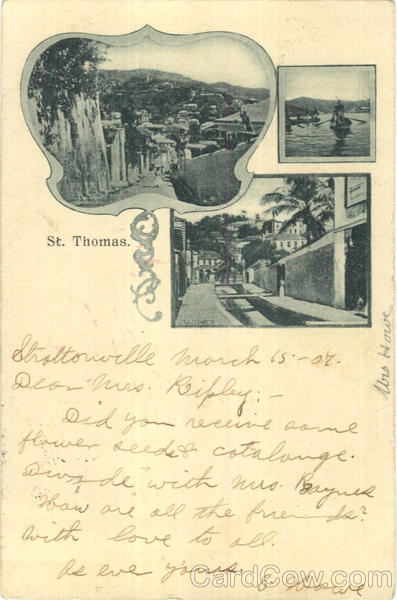 St. Thomas.
Strattonville March 15-07.
Dear Mrs. Ripley.-
Did you receive some
flower seeds & catalouge.
Divide with Mrs. Baynes
How are all the friends?
With love to all.
As ever yours.
E Howe
Mrs Howe
CardCow.com